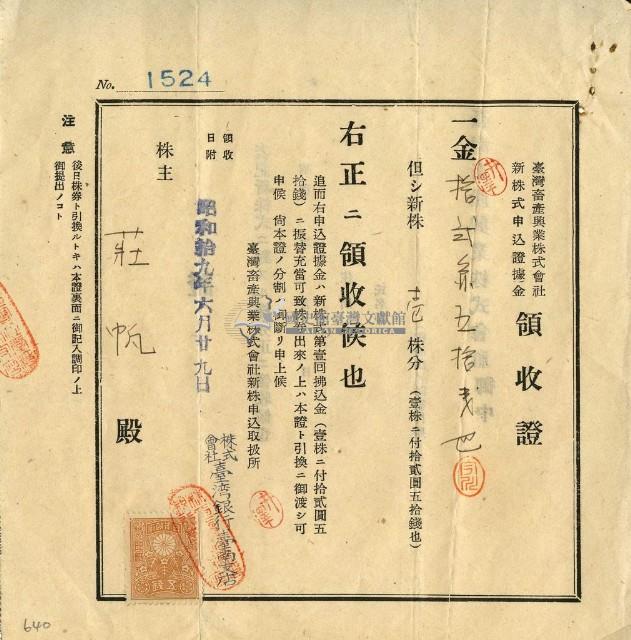 No. 1524
臺灣畜產興業株式會社
新株式申込證據金
領收證
一金拾弐圓五拾戋也
但シ新株 壱 株分（壹株ニ付拾貳圓五拾錢也）
右正ニ領收候也
追而右申込證據金ハ新株式第壹回拂込金（壹株ニ付拾貳圓五
拾錢）ニ振替充當可致株券出來ノ上ハ本證ト引換ニ御渡シ可
申候 尙本證ノ分割ハ御斷リ申上候
臺灣畜產興業株式會社新株申込取扱所
株式會社臺灣銀行臺南支店
領收日附
昭和拾九年六月廿九日
株主
莊 帆
殿
注意
後日株券ト引換ルトキハ本證裏面ニ御記入調印ノ上
御提出ノコト
640